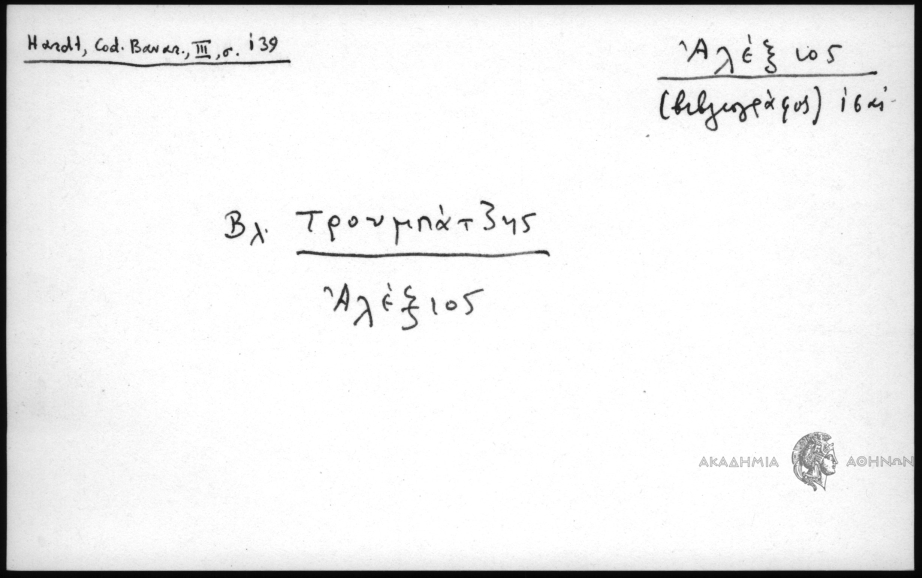 Hardt, Cod. Bavar., III, σ. 139
Ἀλέξιος
(βιβλιογράφος)
Βλ. Τρουμπάτζης
Ἀλέξιος
ΑΚΑΔΗΜΙΑ ΑΘΗΝΩΝ